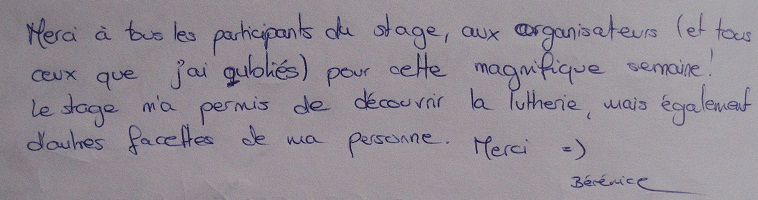 Merci à tous les participants du stage, aux organisateurs (et tous
ceux que j'ai oubliés) pour cette magnifique semaine!
Le stage m'a permis de découvrir la lutherie, mais également
d'autres facettes de ma personne. Merci =)
Bérénice